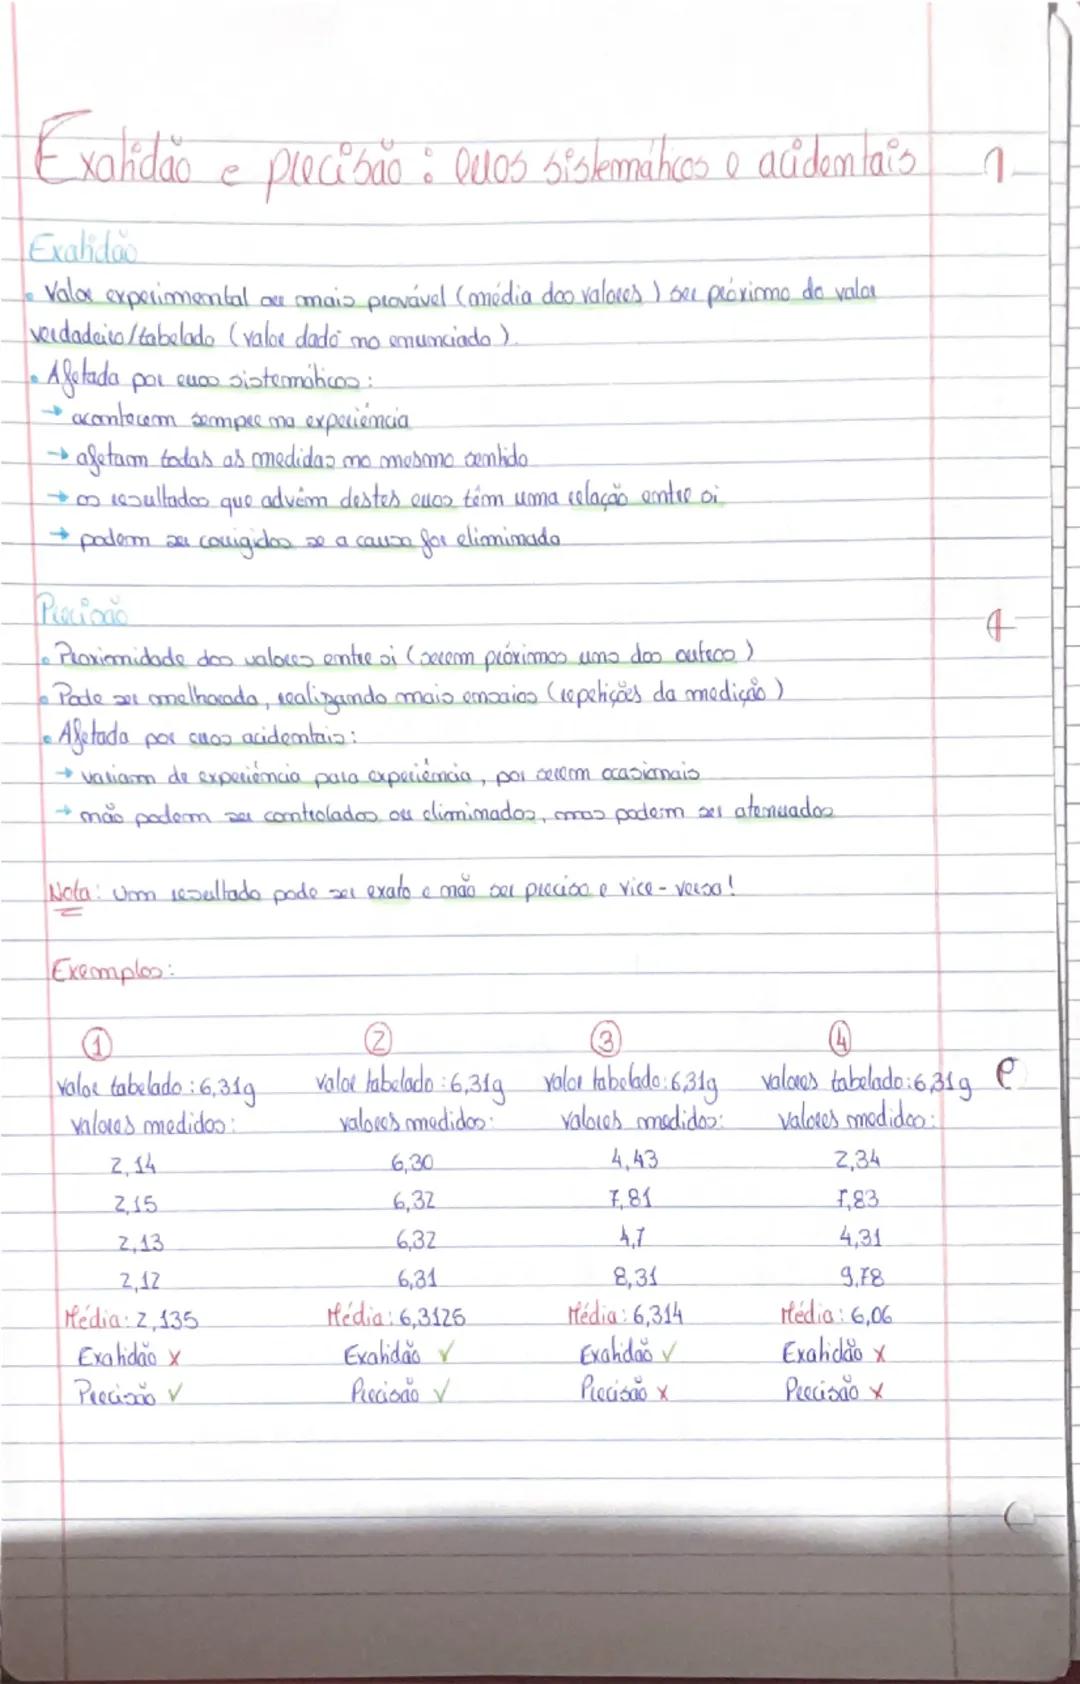 Exatidão e precisão: erros sistemáticos e acidentais
Exatidão
• Valor experimental ou mais provável (média dos valores) ser próximo do valor
verdadeiro/tabelado (valor dado no enunciado).
• Afetada por erros sistemáticos:
→ acontecem sempre na experiência
→ afetam todas as medidas no mesmo sentido
→ os resultados que advêm destes erros têm uma relação entre si
→ podem ser corrigidos se a causa for eliminada
Precisão
• Proximidade dos valores entre si (serem próximos uns dos outros)
• Pode ser melhorada, realizando mais ensaios (repetições da medição)
• Afetada por erros acidentais:
→ variam de experiência para experiência, por serem ocasionais
→ não podem ser controlados ou eliminados, mas podem ser atenuados
Nota: Um resultado pode ser exato e não ser preciso e vice-versa!
Exemplos:
1 2 3 4
valor tabelado: 6,31g valor tabelado: 6,31g valor tabelado: 6,31g valores tabelado: 6,31g
valores medidos: valores medidos: valores medidos: valores medidos:
2,14 6,30 4,43 2,34
2,15 6,32 7,81 7,83
2,13 6,32 4,7 4,31
2,12 6,31 8,31 9,78
Média: 2,135 Média: 6,3125 Média: 6,314 Média: 6,06
Exatidão x Exatidão ✓ Exatidão ✓ Exatidão x
Precisão ✓ Precisão ✓ Precisão x Precisão x